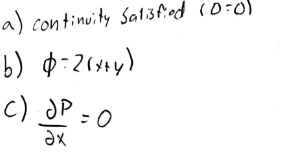 a) continuity Satisfied (0=0)
b) ϕ=2(x+y)
c) ∂P/∂x = 0